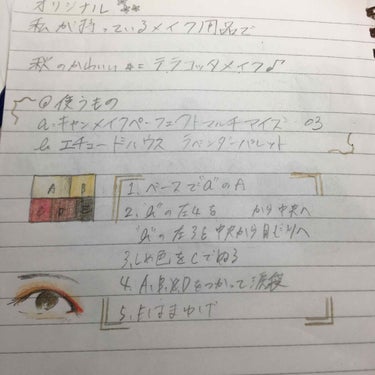 オリジナル
私が持っているメイク用品で
秋のかわいい テラコッタメイク♪
@使うもの
a.キャンメイクパーフェクトマルチアイズ 03
b.エチュードハウス ラベンダーパレット
A B
C D E
1.ベースで"a"のA
2."a"の左4を から中央へ
"a"の左3を中央から目じりへ
3.しめ色をCでぬる
4.A.B.Dをつかって涙袋
5.Eはまゆげ